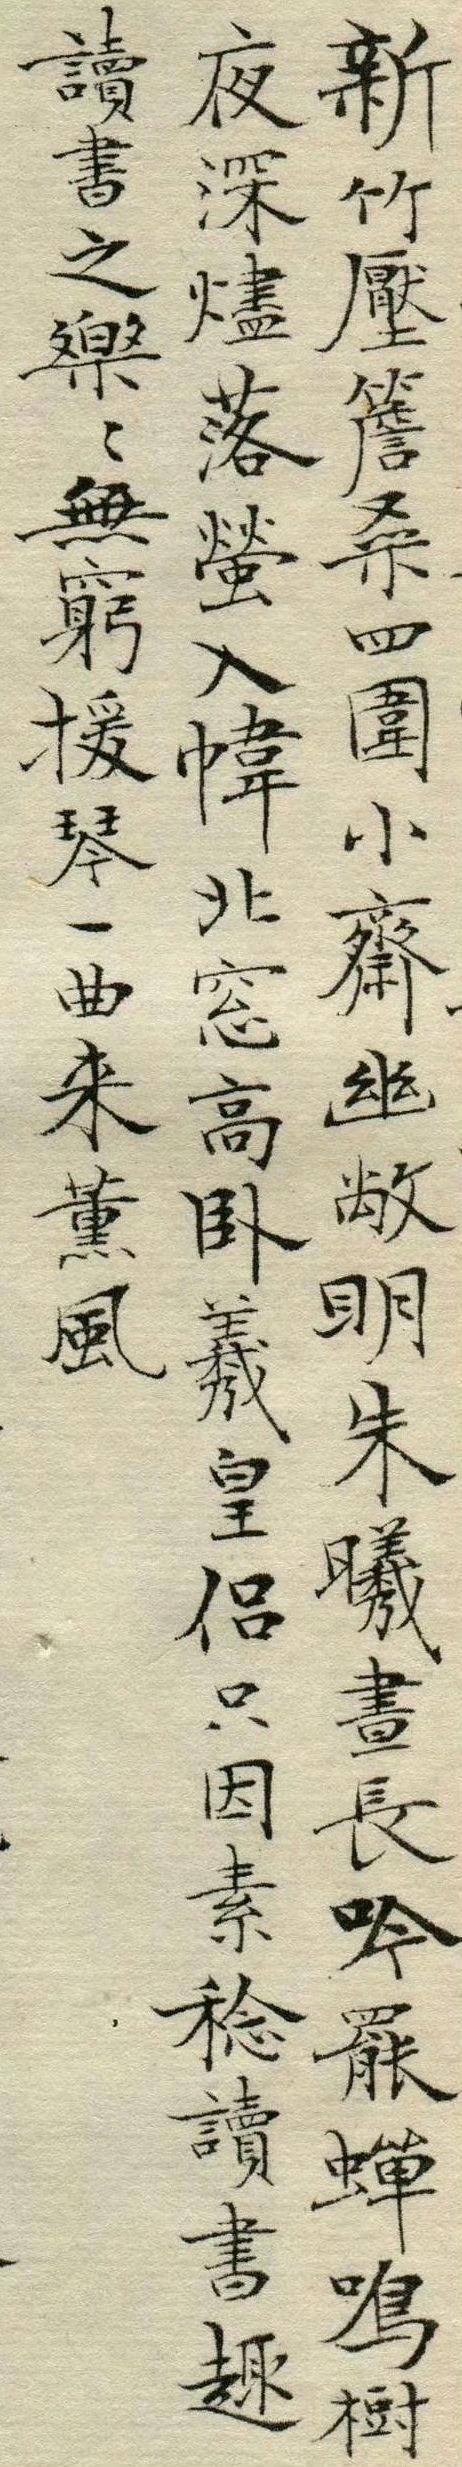 新竹壓簷桑四圍小齋幽敞明朱曦晝長吟罷蟬鳴樹
夜深燼落螢入幃北窓高臥羲皇侶只因素稔讀書趣
讀書之樂〻無窮援琴一曲来薰風